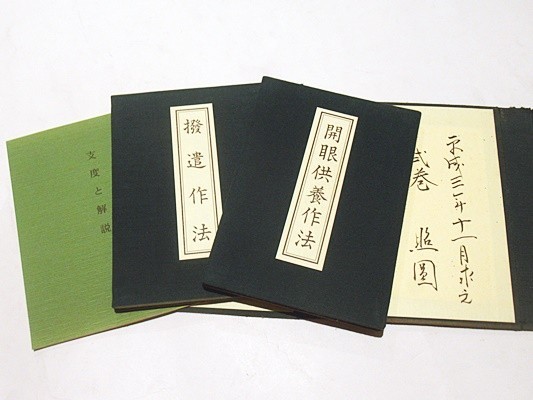 開眼供養作法
撥遣作法
支度と解説
平成三年十一月求之
弐巻 照圓